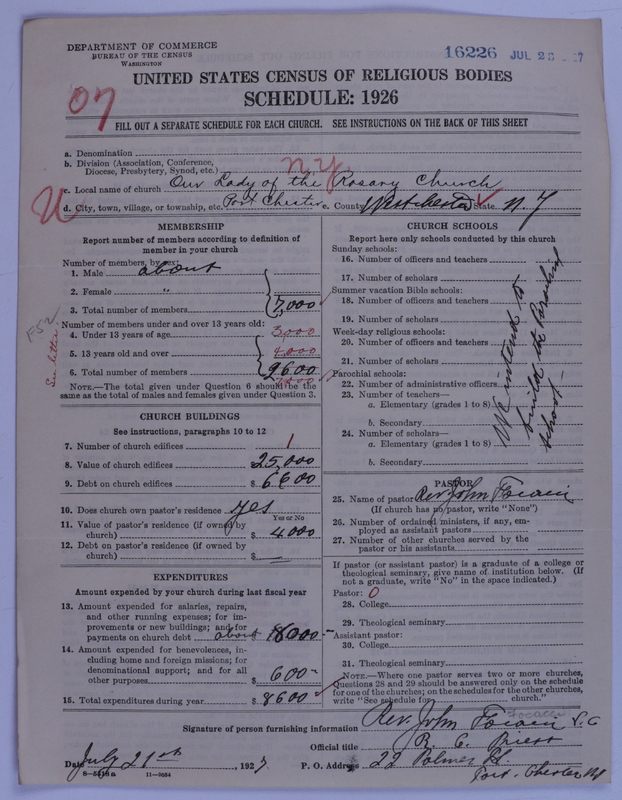 DEPARTMENT OF COMMERCE
BUREAU OF THE CENSUS
WASHINGTON
16226 JUL 2 7
UNITED STATES CENSUS OF RELIGIOUS BODIES
SCHEDULE: 1926
07
FILL OUT A SEPARATE SCHEDULE FOR EACH CHURCH. SEE INSTRUCTIONS ON THE BACK OF THIS SHEET
a. Denomination
b. Division (Association, Conference, Diocese, Presbytery, Synod, etc.) N.Y.
c. Local name of church Our Lady of the Rosary Church
U
d. City, town, village, or township, etc. Port Chester e. County Westchester State N. Y
MEMBERSHIP
Report number of members according to definition of member in your church
Number of members, by sex:
1. Male about
2. Female "
3. Total number of members 7,000
F52
See letter
Number of members under and over 13 years old:
4. Under 13 years of age 3,000
5. 13 years old and over 4,000
6. Total number of members 2600
7000
NOTE.—The total given under Question 6 should be the same as the total of males and females given under Question 3.
CHURCH BUILDINGS
See instructions, paragraphs 10 to 12
7. Number of church edifices 1
8. Value of church edifices $ 25,000
9. Debt on church edifices $ 6600
10. Does church own pastor's residence? yes
Yes or No
11. Value of pastor's residence (if owned by church) $ 4000
12. Debt on pastor's residence (if owned by church) $ —
EXPENDITURES
Amount expended by your church during last fiscal year
13. Amount expended for salaries, repairs, and other running expenses; for improvements or new buildings; and for payments on church debt about 8000-
14. Amount expended for benevolences, including home and foreign missions; for denominational support; and for all other purposes $ 600-
15. Total expenditures during year $ 8600
CHURCH SCHOOLS
Report here only schools conducted by this church
Sunday schools:
16. Number of officers and teachers
17. Number of scholars
Summer vacation Bible schools:
18. Number of officers and teachers
19. Number of scholars
Week-day religious schools:
20. Number of officers and teachers
21. Number of scholars
Parochial schools:
22. Number of administrative officers
23. Number of teachers—
a. Elementary (grades 1 to 8)
b. Secondary
24. Number of scholars—
a. Elementary (grades 1 to 8)
b. Secondary
We intend to
build the Parochial
school-
PASTOR
25. Name of pastor Rev. John
(If church has no pastor, write "None")
26. Number of ordained ministers, if any, employed as assistant pastors
27. Number of other churches served by the pastor or his assistants
If pastor (or assistant pastor) is a graduate of a college or theological seminary, give name of institution below. (If not a graduate, write "No" in the space indicated.)
Pastor: 0
28. College
29. Theological seminary
Assistant pastor:
30. College
31. Theological seminary
NOTE.—Where one pastor serves two or more churches, Questions 28 and 29 should be answered only on the schedule for one of the churches; on the schedules for the other churches, write "See schedule for church."
Signature of person furnishing information Rev. John S.C
Official title R. C. Priest
Date July 21st, 1927 P. O. Address 22 Palmer St.
Port-Chester NY
8—5418a 11—9054